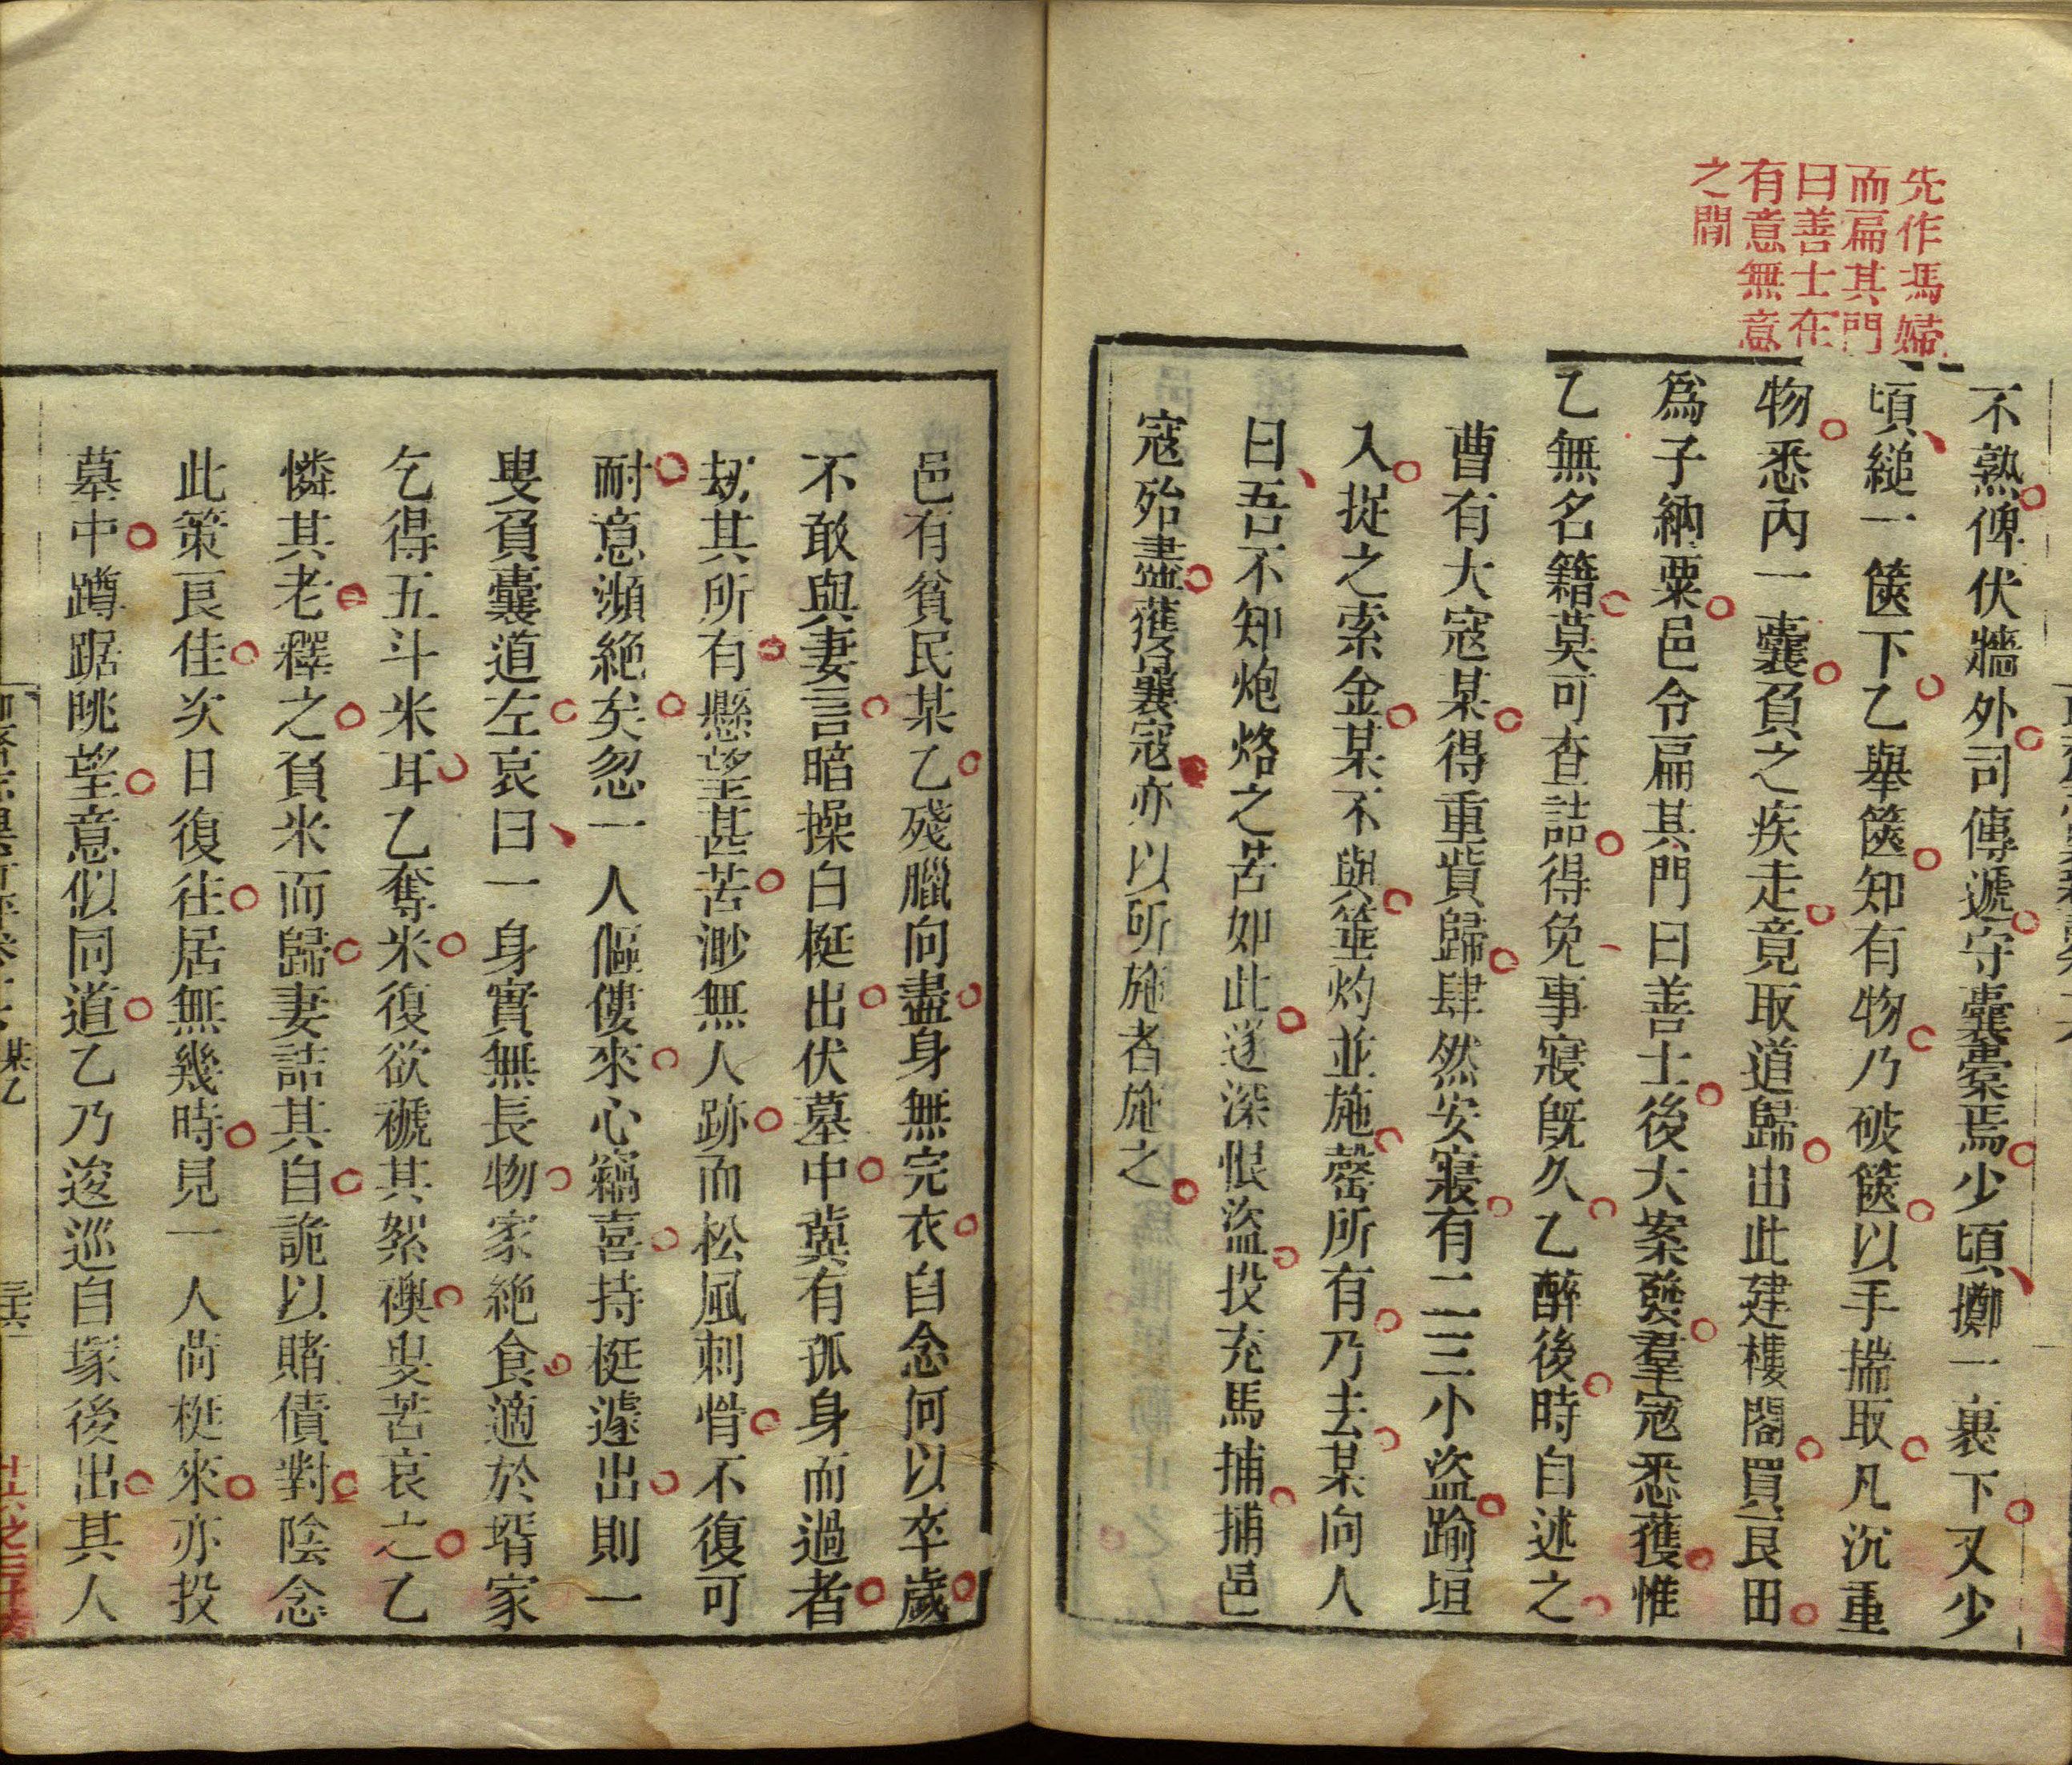 先作馮婦
而扁其門
曰善士在
有意無意
之間
不熟俾伏牆外司傳遞守囊橐焉少頃擲一裹下又少
頃縋一篋下乙舉篋知有物乃破篋以手揣取凡沉重
物悉內一囊負之疾走竟取道歸由此建樓閣買良田
爲子納粟邑令扁其門曰善士後大案發羣寇悉獲惟
乙無名籍莫可查詰得免事寢旣久乙醉後時自述之
曹有大寇某得重貲歸肆然安寢有二三小盜踰垣
入捉之索金某不與箠灼並施罄所有乃去某向人
曰吾不知炮烙之苦如此遂深恨盜投充馬捕捕邑
寇殆盡獲曩寇亦以所施者施之
邑有貧民某乙殘臘向盡身無完衣自念何以卒歲
不敢與妻言暗操白梃出伏墓中冀有孤身而過者
刼其所有懸望甚苦渺無人跡而松風刺骨不復可
耐意瀕絕矣忽一人傴僂來心竊喜持梃遽出則一
叟負囊道左哀曰一身實無長物家絕食適於壻家
乞得五斗米耳乙奪米復欲褫其絮襖叟苦哀之乙
憐其老釋之負米而歸妻詰其自詭以賭債對陰念
此策良佳次日復往居無幾時見一人荷梃來亦投
墓中蹲踞眺望意似同道乙乃逡巡自塚後出其人
某乙